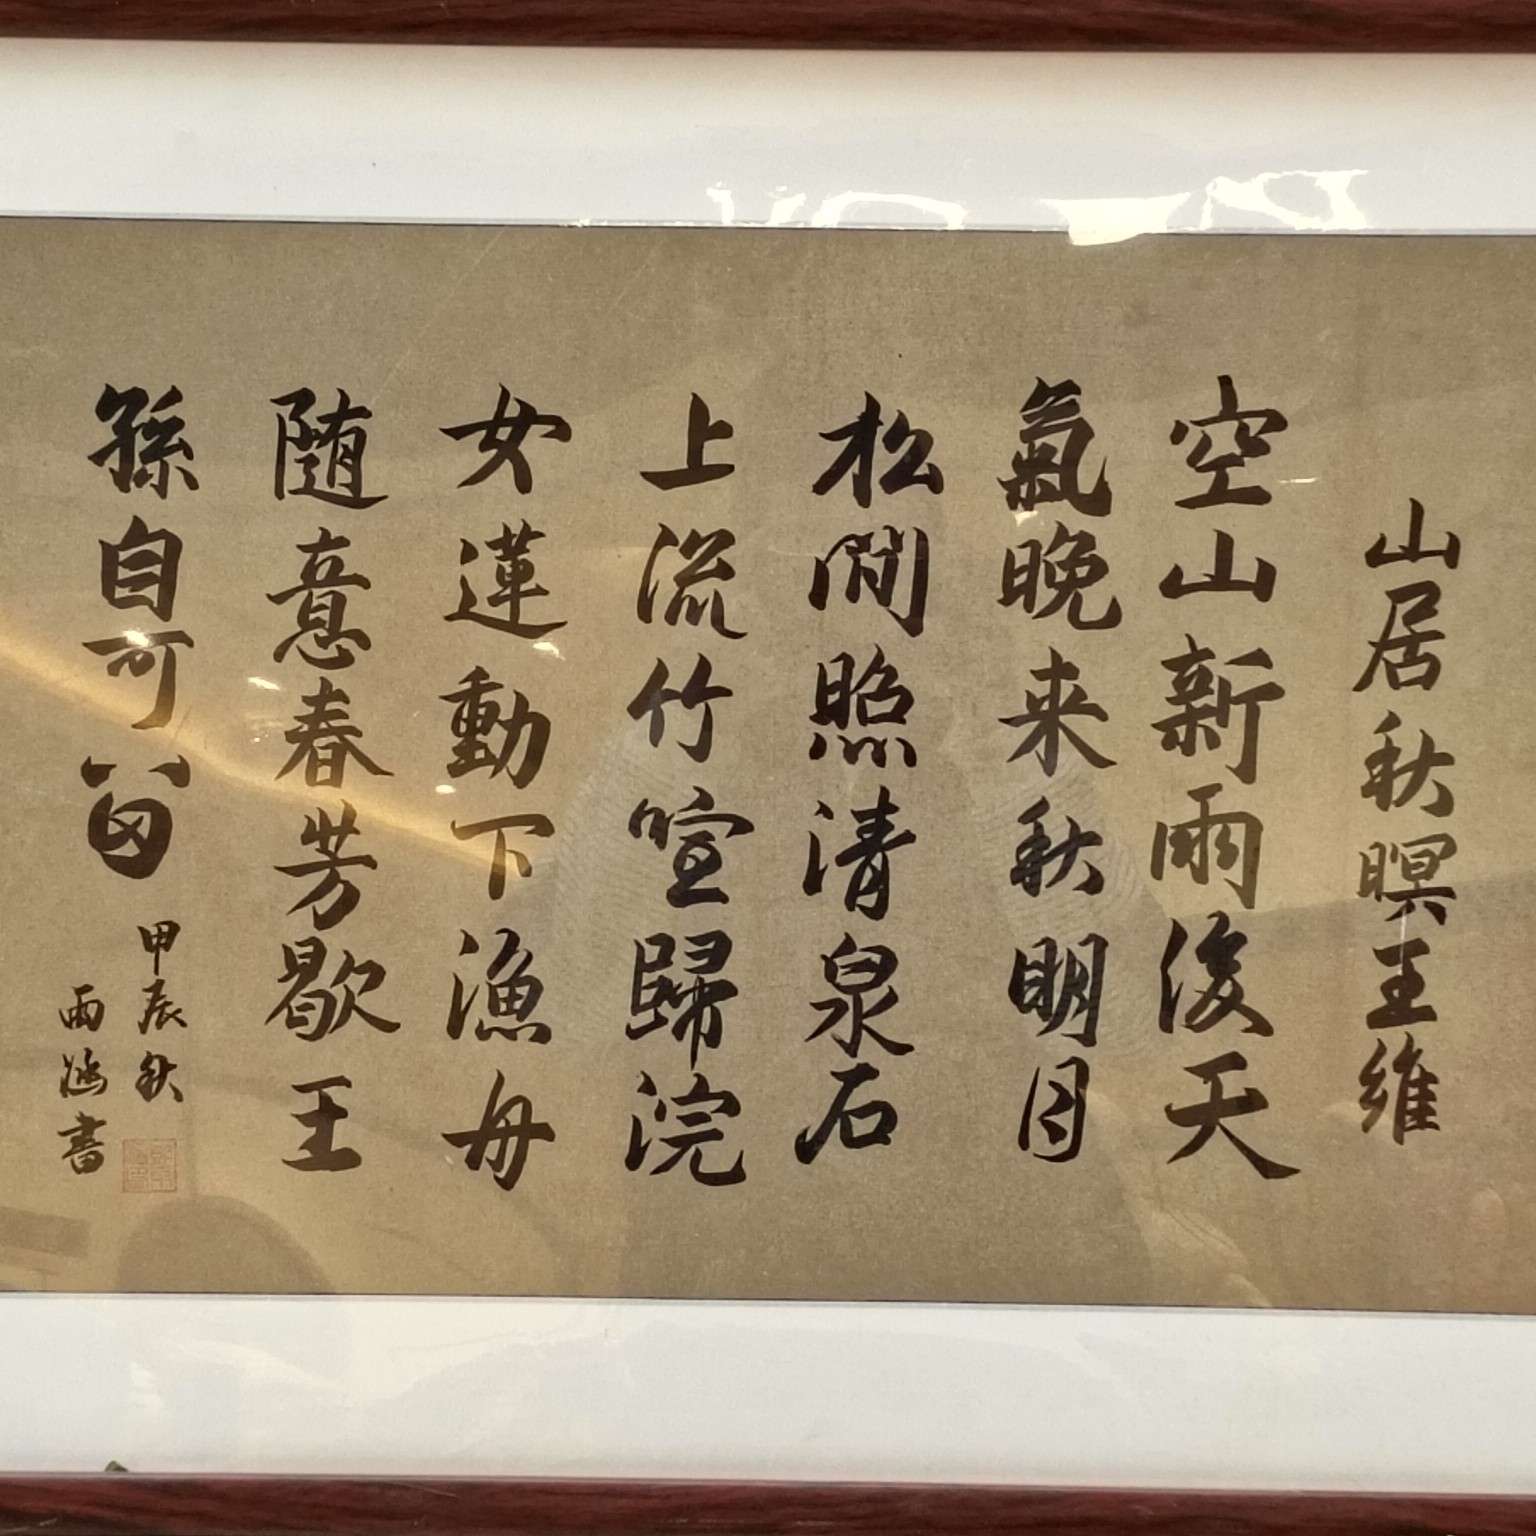 山居秋暝王維
空山新雨後天
氣晚来秋明月
松間照清泉石
上流竹喧歸浣
女蓮動下漁舟
随意春芳歇王
孫自可留
甲辰秋
雨涵書